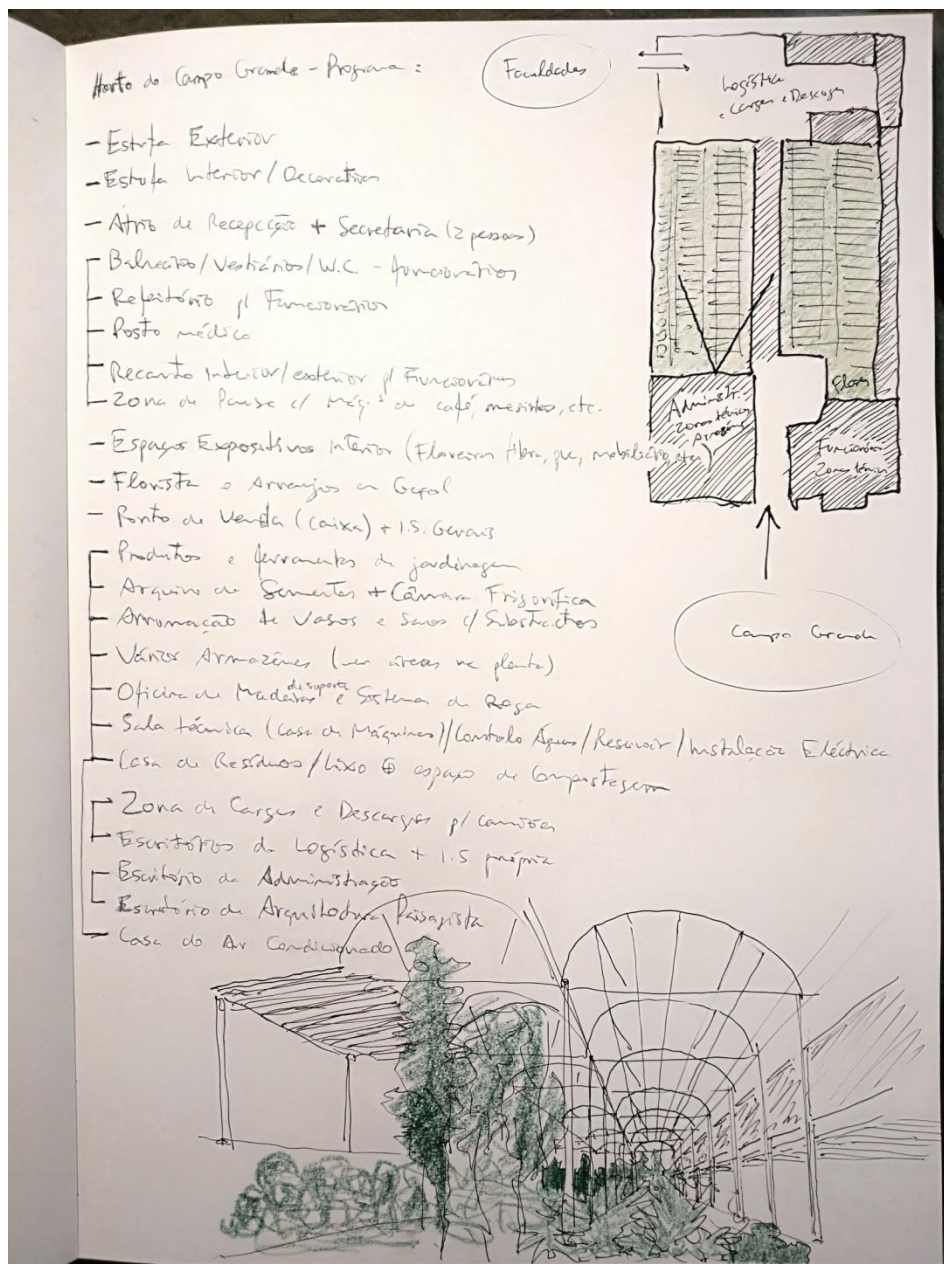 Horto do Campo Grande - Programa :
- Estufa Exterior
- Estufa Interior/Decorativa
- Átrio de Recepção + Secretaria (2 pessoas)
- Balneários/Vestiários/W.C. - funcionários
- Refeitório p/ Funcionários
- Posto médico
- Recanto Interior/exterior p/ Funcionários
- Zona de Pausa c/ máq.s de café, mesinhas, etc.
- Espaços Expositivos Interior (Floreiras fibra, pvc, mobiliário, etc.)
- Florista e Arranjos em Geral
- Ponto de Venda (caixa) + I.S. Gerais
- Produtos e ferramentas de jardinagem
- Arquivo de Sementes + Câmara Frigorífica
- Arrumação de Vasos e Sacos c/ Substractos
- Vários Armazéns (ver áreas na planta)
- Oficina de Madeiras de suporte e Sistema de Rega
- Sala técnica (Casa de Máquinas)/Controlo Águas/Reservoir/Instalação Eléctrica
- Casa de Resíduos/Lixo + espaço de Compostagem
- Zona de Cargas e Descargas p/ camiões
- Escritórios de Logística + I.S. própria
- Escritório da Administração
- Escritório de Arquitectura Paisagista
- Casa do Ar Condicionado
Faculdades
Logística
e Cargas e Descargas
Flores
Administ.
Zonas técnicas
Armazéns
Funcionários
Zonas técnicas
Campo Grande